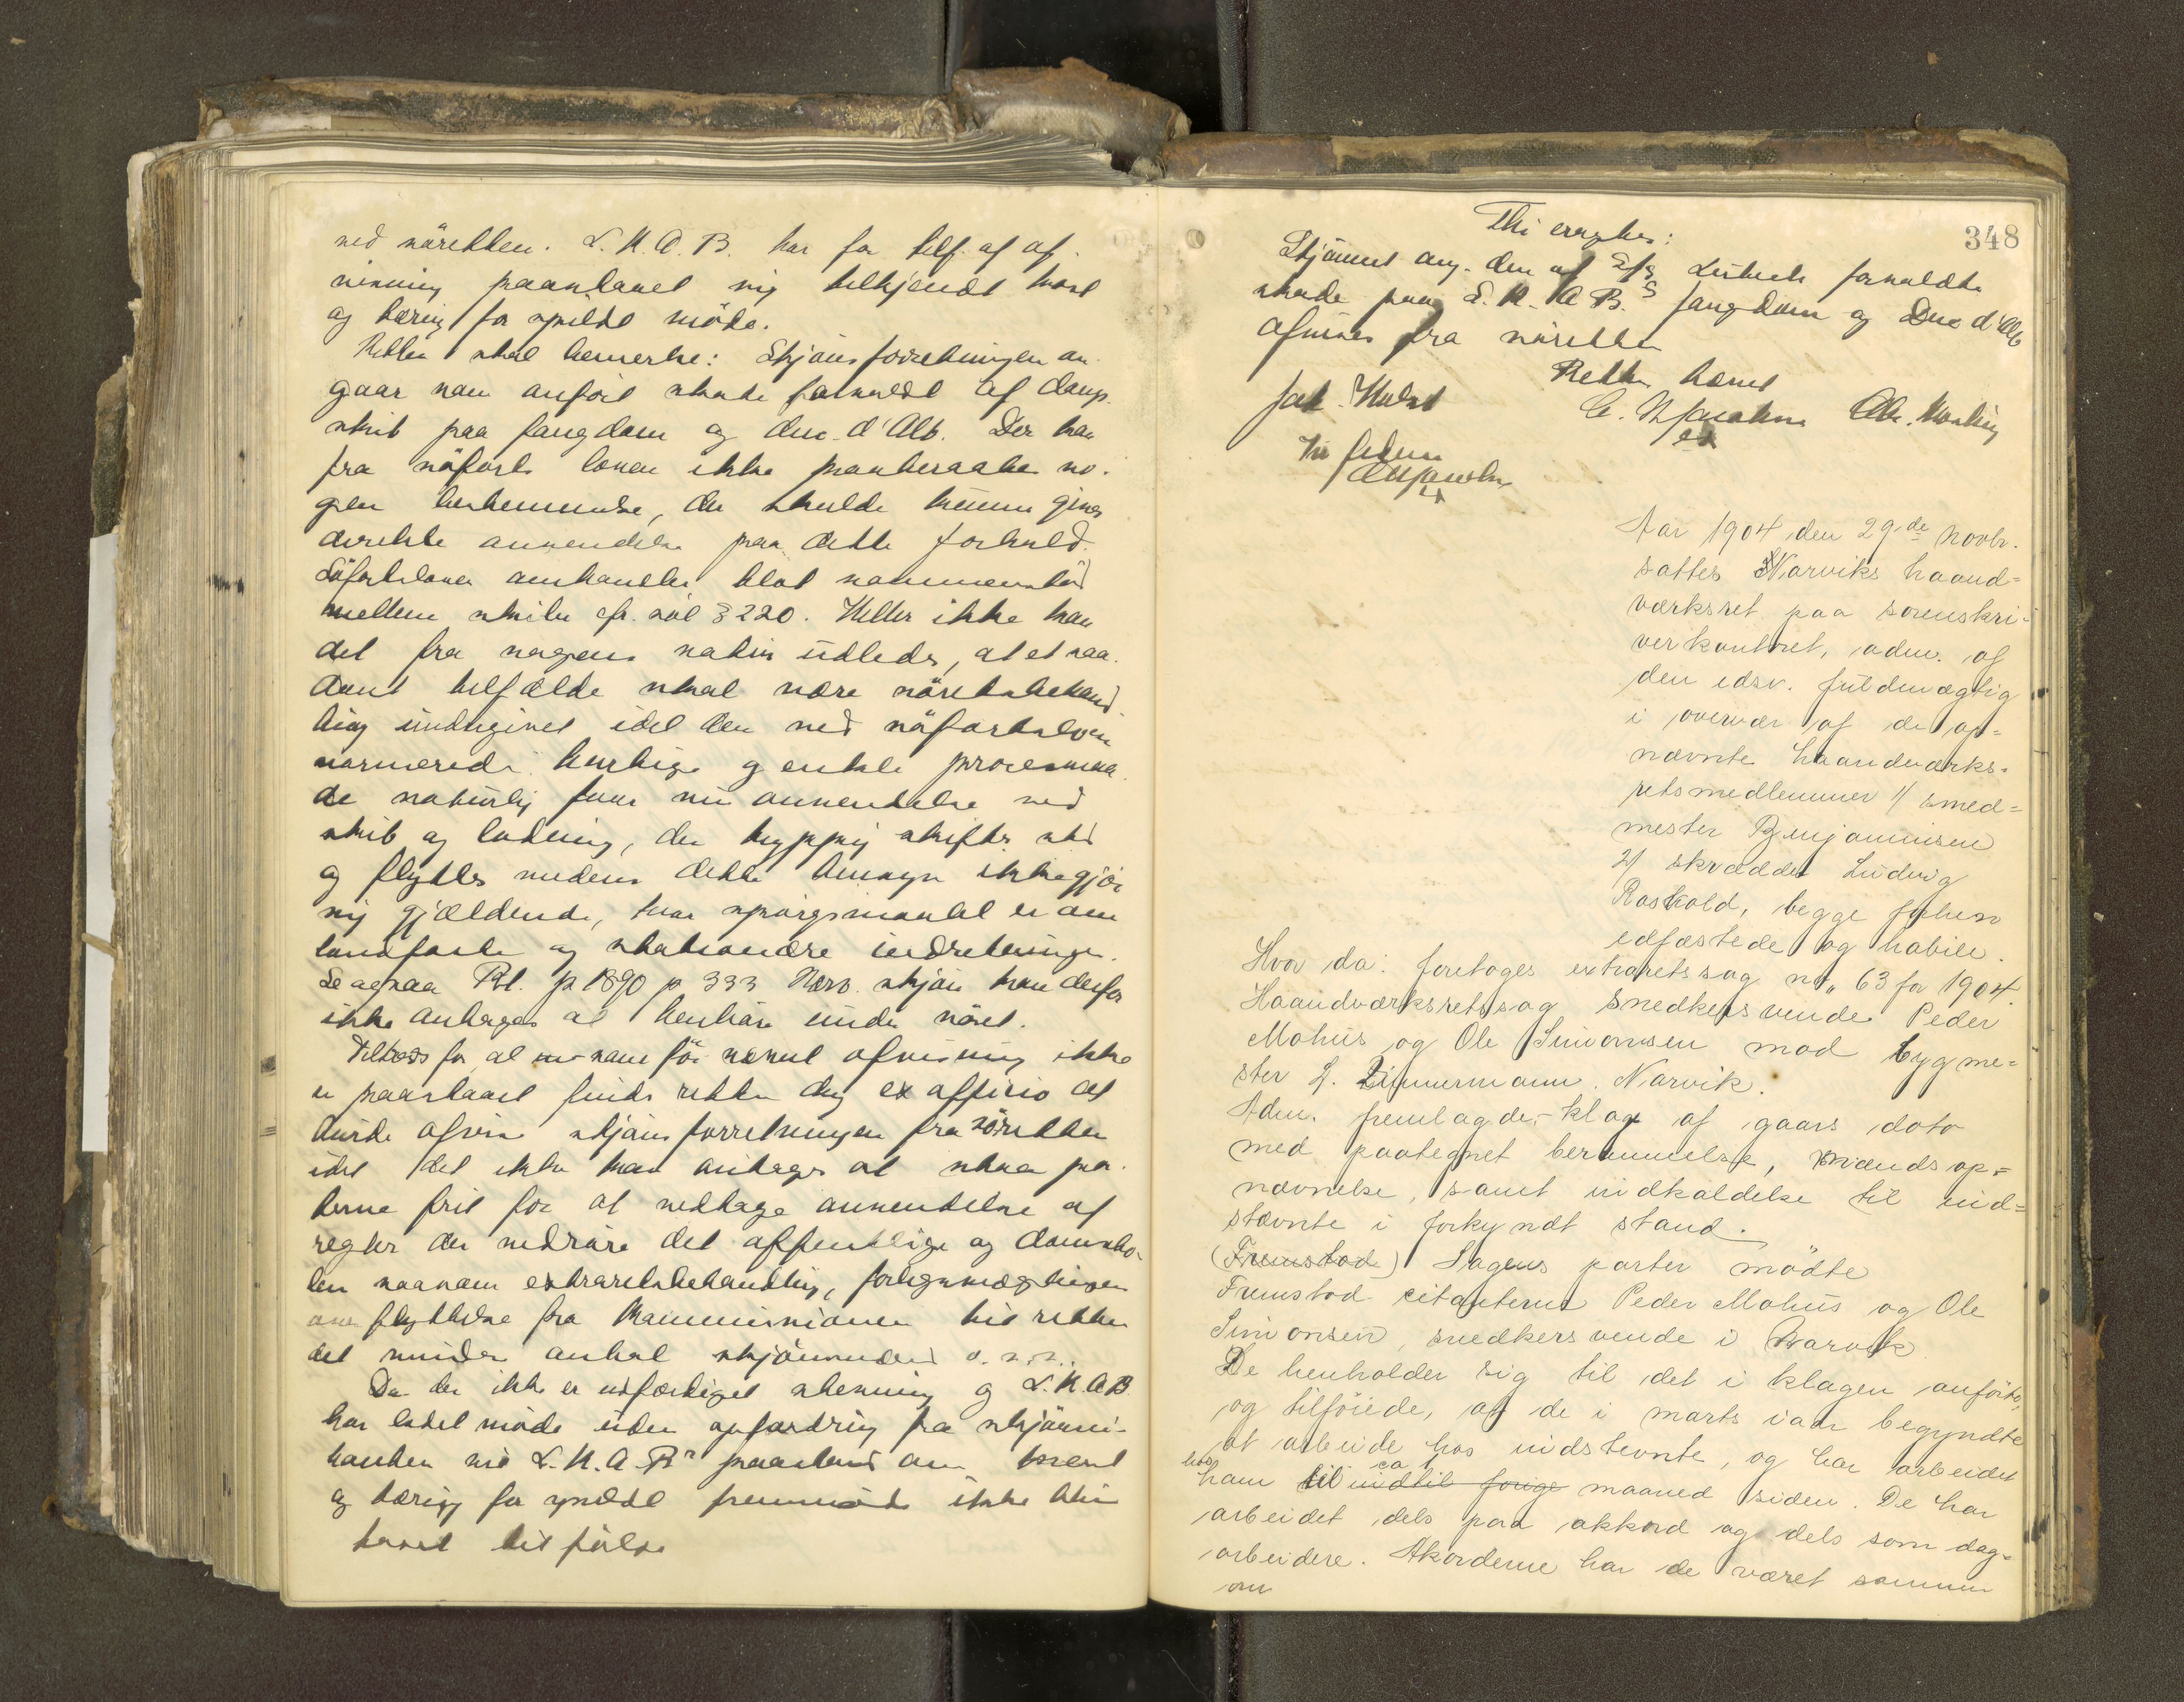 ved söretten. L. K. A. B. har for tilf. af af-
visning paastaaet sig tilkjendt kost
og tæring for spildt möde.
Retten skal bemerke: Skjönsforretningen an-
gaar som anfört skade forvoldt af damp-
skib paa fangdam og duc d'Alb. Der kan
fra söfartsloven ikke paaberaabes no-
gen bestemmelse, der skulde kunne gives
direkte anvendelse paa dette forhold.
Söfartsloven omhandler blot sammenstöd
mellem skibe cfr. söl § 220. Heller ikke kan
det fra sagens natur udledes, at et saa-
dant tilfælde skal være söretsbehand-
ling undergivet idet den ved söfartsloven
normerede hurtige og enkle procesmaa-
de naturlig faar sin anvendelse ved
skib og ladning, der hyppig skifter sted
og flyttes medens dette hensyn ikke gjör
sig gjældende, hvor spörgsmaalet er om
landfaste og stationære indretninger.
Se ogsaa Rt. p 1890 p 333 Nærv. skjön kan derfor
ikke antages at henhöre under söret.
Tiltrods for at som för nævnt afvisning ikke
er paastaaet finder retten dog ex officio at
burde afvise skjönsforretningen fra söretten
idet det ikke kan antages at staa par-
terne frit for at vedtage anvendelse af
regler der vedröre det offentlige og domsto-
len saasom extraretsbehandling, forligsmægling
overflyttelse fra kommissionen til retten
det mindre antal skjönsmænd o. s. v.
Da der ikke er udfærdiget stevning og L.K.A.B.
har ladet möde uden opfordring fra skjönni-
L.K.A.B's paastand om kost
og tæring for spildt fremmöde ikke blive
tavet tilfölge
348
Thi eragtes:
Skjönnet ang. den af S/S Lübeck forvoldte
skade paa L. K. A. B.s fangdam og Duc d'Alb
afvises fra söretten
Retten hævet
Aar 1904 den 29de novbr.
sattes Narviks haand-
værksret paa sorenskri-
verkontoret, adm. af
den edsv. fuldmægtig
i overvær af de op-
nævnte haandværks-
retsmedlemmer 1/ smed-
mester Benjaminsen
2/ skrædder Ludvig
Roskold, begge forhen
edfæstede og habile.
Hvor da: foretoges extraretssag no. 63 for 1904.
Haandværksretssag snedkersvende Peder
Mohus og Ole Simonsen mod bygme-
ster J. Zimmermann. Narvik.
Adm. fremlagde klage af gaars dato
med paategnet berammelse, mænds op-
nævnelse, samt indkaldelse til ind-
stævnte i forkyndt stand.
(Fremstod) Sagens parter mödte
Fremstod citanterne Peder Mohus og Ole
Simonsen, snedkersvende i Narvik
De henholder sig til det i klagen anförte,
og tilföiede, at de i marts iaar begyndte
at arbeide hos indstevnte, og har arbeidet
hos
ham til ca 1 indtil forige maaned siden. De har
arbeidet dels paa akkord og dels som dag-
arbeidere. Akorderne har de været sammen
om